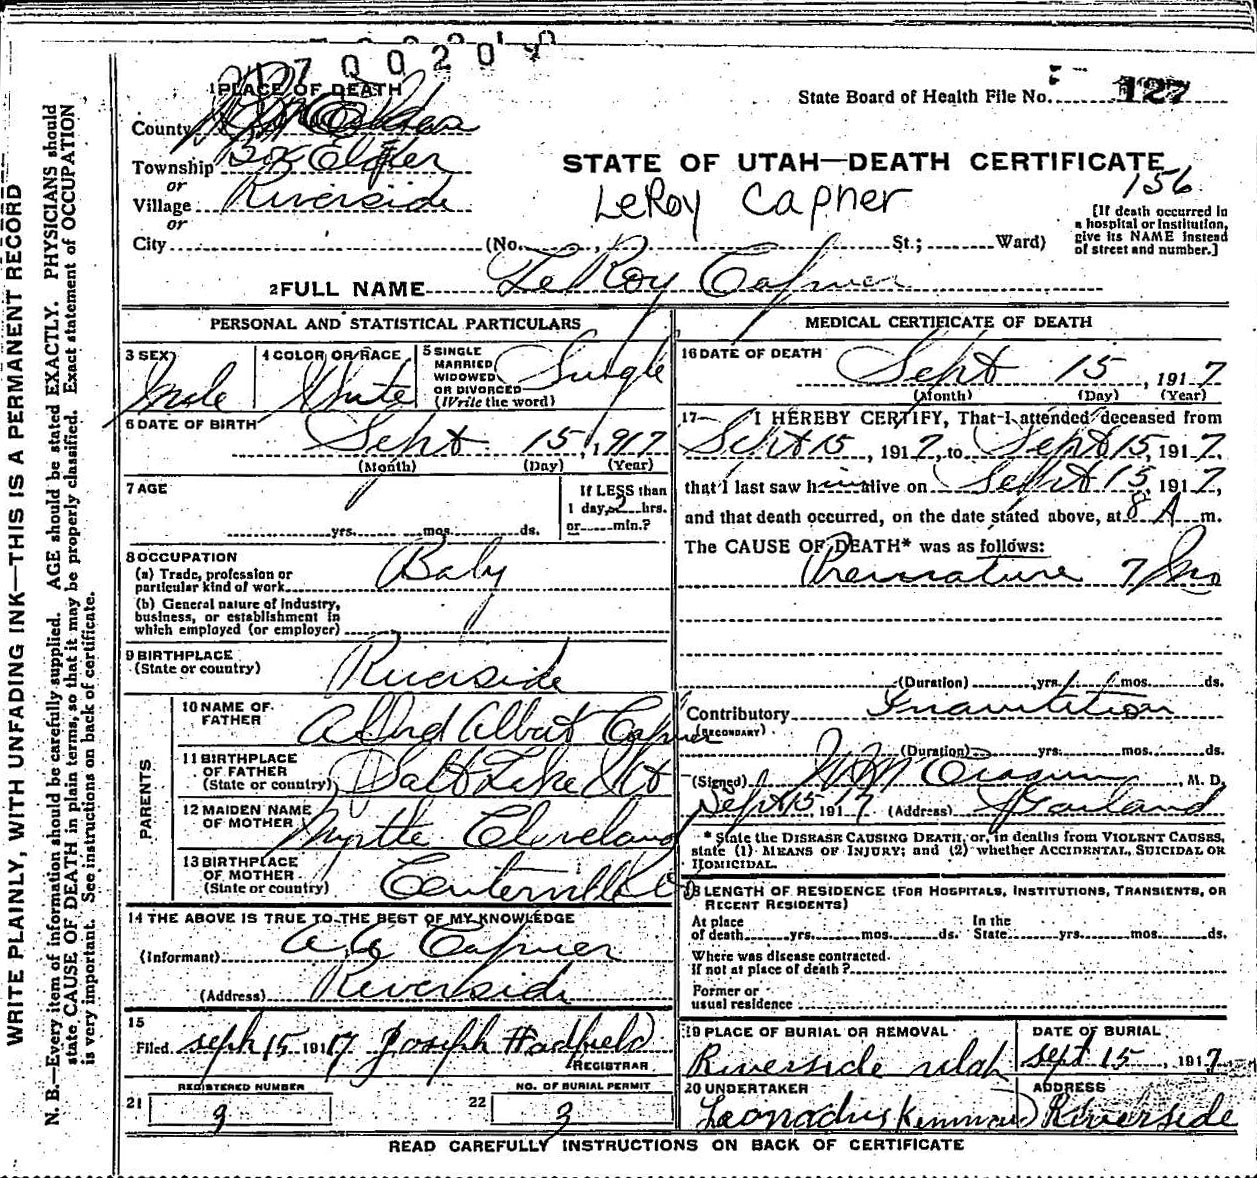 1700209
1 PLACE OF DEATH
State Board of Health File No. 127
County
Township Box Elder
STATE OF UTAH—DEATH CERTIFICATE
156
or
Village Riverside
LeRoy Capner
or
City (No. St.; Ward)
[If death occurred in a hospital or institution, give its NAME instead of street and number.]
2 FULL NAME LeRoy Capner
PERSONAL AND STATISTICAL PARTICULARS
3 SEX Male
4 COLOR OR RACE White
5 SINGLE MARRIED WIDOWED OR DIVORCED (Write the word) Single
6 DATE OF BIRTH Sept 15, 1917
(Month) (Day) (Year)
7 AGE
yrs. mos. ds.
If LESS than
1 day, 2 hrs.
or min.?
8 OCCUPATION
(a) Trade, profession or
particular kind of work Baby
(b) General nature of industry,
business, or establishment in
which employed (or employer)
9 BIRTHPLACE
(State or country) Riverside
PARENTS
10 NAME OF FATHER Alfred Albert Capner
11 BIRTHPLACE OF FATHER (State or country) Salt Lake
12 MAIDEN NAME OF MOTHER Myrtle Cleveland
13 BIRTHPLACE OF MOTHER (State or country) Centerville
14 THE ABOVE IS TRUE TO THE BEST OF MY KNOWLEDGE
(Informant) A A Capner
(Address) Riverside
15
Filed Sept 15 1917 Joseph Hadfield
REGISTRAR
REGISTERED NUMBER
21 9
NO. OF BURIAL PERMIT
22
MEDICAL CERTIFICATE OF DEATH
16 DATE OF DEATH
Sept 15, 1917
(Month) (Day) (Year)
17 I HEREBY CERTIFY, That I attended deceased from
Sept 15, 1917, to Sept 15, 1917,
that I last saw him alive on Sept 15, 1917,
and that death occurred, on the date stated above, at 8 A m.
The CAUSE OF DEATH* was as follows:
Premature 7 Mo
(Duration) yrs. mos. ds.
Contributory Inanition
(SECONDARY)
(Duration) yrs. mos. ds.
(Signed) M.D.
Sept 15 1917 (Address) Garland
* State the DISEASE CAUSING DEATH, or, in deaths from VIOLENT CAUSES,
state (1) MEANS OF INJURY; and (2) whether ACCIDENTAL, SUICIDAL OR
HOMICIDAL.
18 LENGTH OF RESIDENCE (FOR HOSPITALS, INSTITUTIONS, TRANSIENTS, OR
RECENT RESIDENTS)
At place of death yrs. mos. ds. In the State yrs. mos. ds.
Where was disease contracted.
If not at place of death?
Former or
usual residence
19 PLACE OF BURIAL OR REMOVAL
Riverside Utah
DATE OF BURIAL
Sept 15, 1917
20 UNDERTAKER
ADDRESS
Riverside
READ CAREFULLY INSTRUCTIONS ON BACK OF CERTIFICATE
WRITE PLAINLY, WITH UNFADING INK—THIS IS A PERMANENT RECORD
N. B.—Every item of information should be carefully supplied. AGE should be stated EXACTLY. PHYSICIANS should
state CAUSE OF DEATH in plain terms, so that it may be properly classified. Exact statement of OCCUPATION
is very important. See instructions on back of certificate.